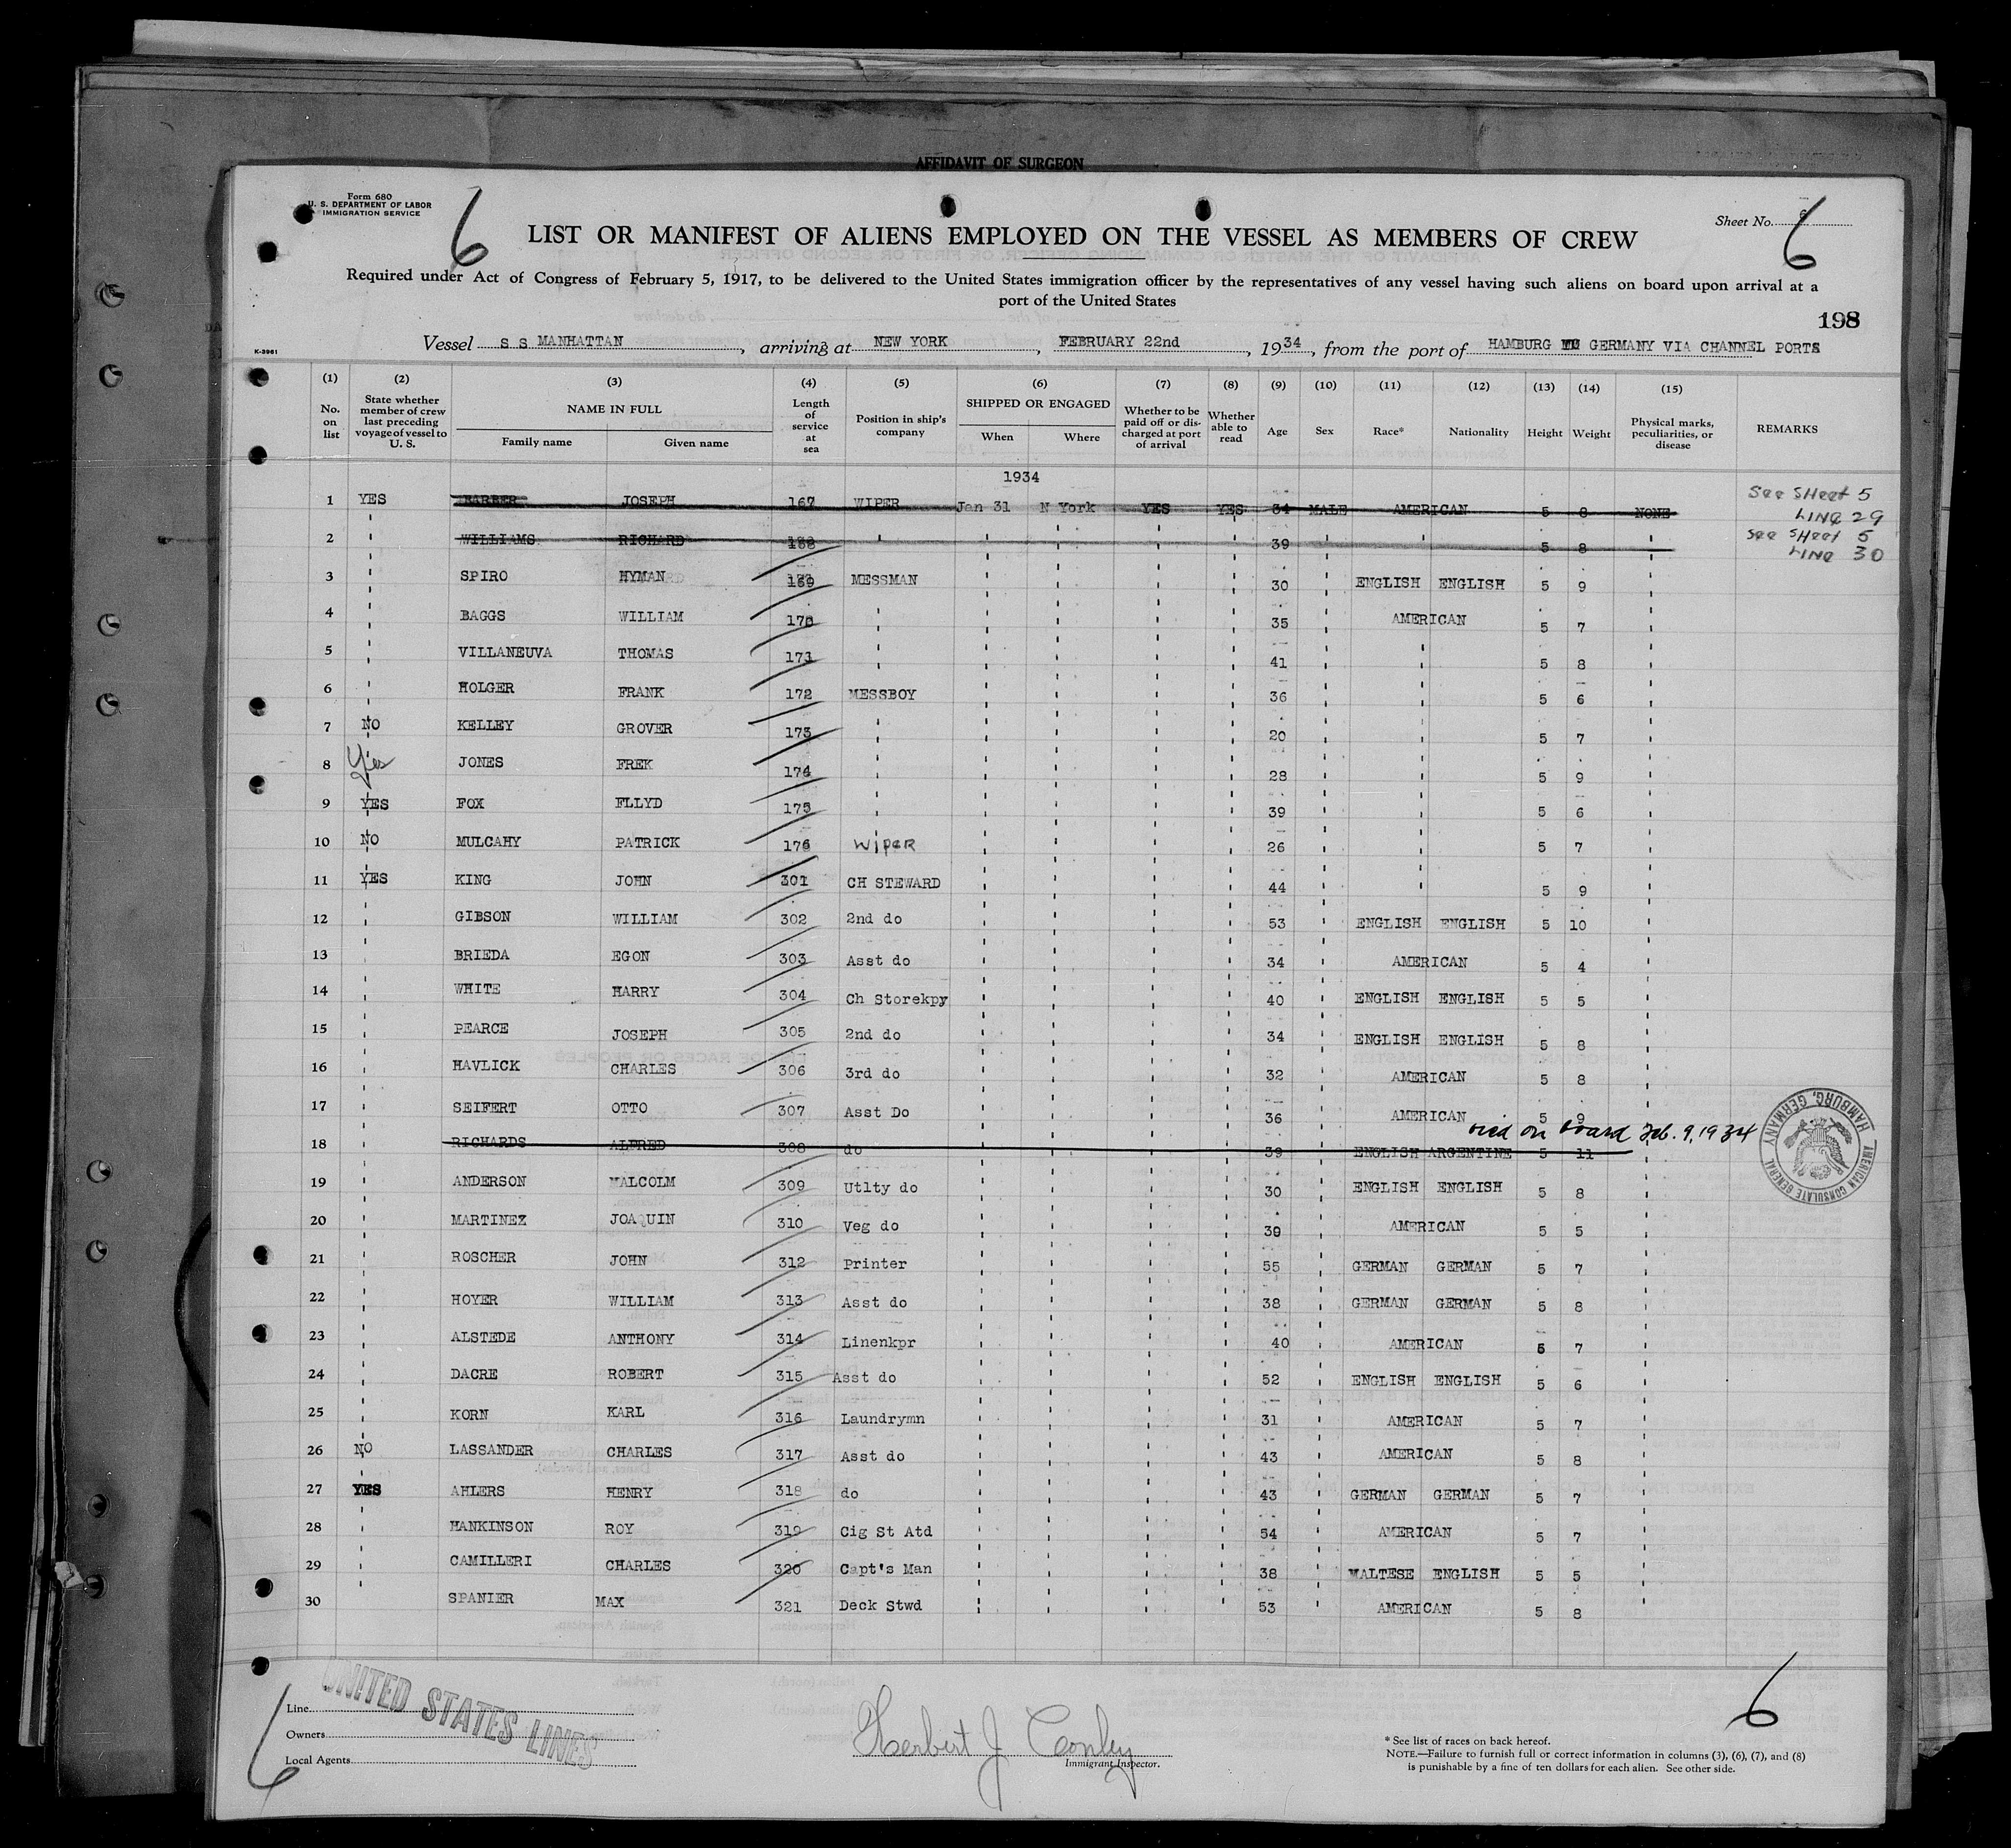 AFFIDAVIT OF SURGEON
Form 680
U. S. DEPARTMENT OF LABOR
IMMIGRATION SERVICE
6
Sheet No. 6
6
LIST OR MANIFEST OF ALIENS EMPLOYED ON THE VESSEL AS MEMBERS OF CREW
Required under Act of Congress of February 5, 1917, to be delivered to the United States immigration officer by the representatives of any vessel having such aliens on board upon arrival at a
port of the United States
198
K-3961
Vessel S S MANHATTAN, arriving at NEW YORK, FEBRUARY 22nd, 1934, from the port of HAMBURG GERMANY VIA CHANNEL PORTS
(1) (2) (3) (4) (5) (6) (7) (8) (9) (10) (11) (12) (13) (14) (15)
No. on list State whether member of crew last preceding voyage of vessel to U. S. NAME IN FULL Family name Given name Length of service at sea Position in ship's company SHIPPED OR ENGAGED When Where Whether to be paid off or discharged at port of arrival Whether able to read Age Sex Race* Nationality Height Weight Physical marks, peculiarities, or disease REMARKS
1934
1 YES BARBER JOSEPH 167 WIPER Jan 31 N York YES YES 34 MALE AMERICAN 5 8 NONE See SHeet 5 LINe 29
2 " WILLIAMS RICHARD 168 " " " " " 39 " " 5 8 " See SHeet 5 LINe 30
3 " SPIRO HYMAN 169 MESSMAN " " " " 30 " ENGLISH ENGLISH 5 9 "
4 " BAGGS WILLIAM 170 " " " " " 35 " AMERICAN 5 7 "
5 " VILLANEUVA THOMAS 171 " " " " " 41 " " 5 8 "
6 " HOLGER FRANK 172 MESSBOY " " " " 36 " " 5 6 "
7 NO KELLEY GROVER 173 " " " " " 20 " " 5 7 "
8 Yes JONES FREK 174 " " " " " 28 " " 5 9 "
9 YES FOX FLLYD 175 " " " " " 39 " " 5 6 "
10 NO MULCAHY PATRICK 176 wiper " " " " 26 " " 5 7 "
11 YES KING JOHN 301 CH STEWARD " " " " 44 " " 5 9 "
12 " GIBSON WILLIAM 302 2nd do " " " " 53 " ENGLISH ENGLISH 5 10 "
13 " BRIEDA EGON 303 Asst do " " " " 34 " AMERICAN 5 4 "
14 " WHITE HARRY 304 Ch Storekpy " " " " 40 " ENGLISH ENGLISH 5 5 "
15 " PEARCE JOSEPH 305 2nd do " " " " 34 " ENGLISH ENGLISH 5 8 "
16 " HAVLICK CHARLES 306 3rd do " " " " 32 " AMERICAN 5 8 "
17 " SEIFERT OTTO 307 Asst Do " " " " 36 " AMERICAN 5 9 "
Died on board Feb. 9, 1934
18 " RICHARDS ALFRED 308 do " " " " 39 " ENGLISH ARGENTINE 5 11
19 " ANDERSON MALCOLM 309 Utlty do " " " " 30 " ENGLISH ENGLISH 5 8 "
20 " MARTINEZ JOAQUIN 310 Veg do " " " " 39 " AMERICAN 5 5 "
21 " ROSCHER JOHN 312 Printer " " " " 55 " GERMAN GERMAN 5 7 "
22 " HOYER WILLIAM 313 Asst do " " " " 38 " GERMAN GERMAN 5 8 "
23 " ALSTEDE ANTHONY 314 Linenkpr " " " " 40 " AMERICAN 5 7 "
24 " DACRE ROBERT 315 Asst do " " " " 52 " ENGLISH ENGLISH 5 6 "
25 " KORN KARL 316 Laundrymn " " " " 31 " AMERICAN 5 7 "
26 NO LASSANDER CHARLES 317 Asst do " " " " 43 " AMERICAN 5 8 "
27 YES AHLERS HENRY 318 do " " " " 43 " GERMAN GERMAN 5 7 "
28 " HANKINSON ROY 319 Cig St Atd " " " " 54 " AMERICAN 5 7 "
29 " CAMILLERI CHARLES 320 Capt's Man " " " " 38 " MALTESE ENGLISH 5 5 "
30 SPANIER MAX 321 Deck Stwd " " " " 53 " AMERICAN 5 8 "
AMERICAN CONSULATE GENERAL HAMBURG, GERMANY
6
6
Line
Owners
Local Agents
UNITED STATES LINES
Herbert J Conley
Immigrant Inspector.
* See list of races on back hereof.
NOTE.—Failure to furnish full or correct information in columns (3), (6), (7), and (8)
is punishable by a fine of ten dollars for each alien. See other side.